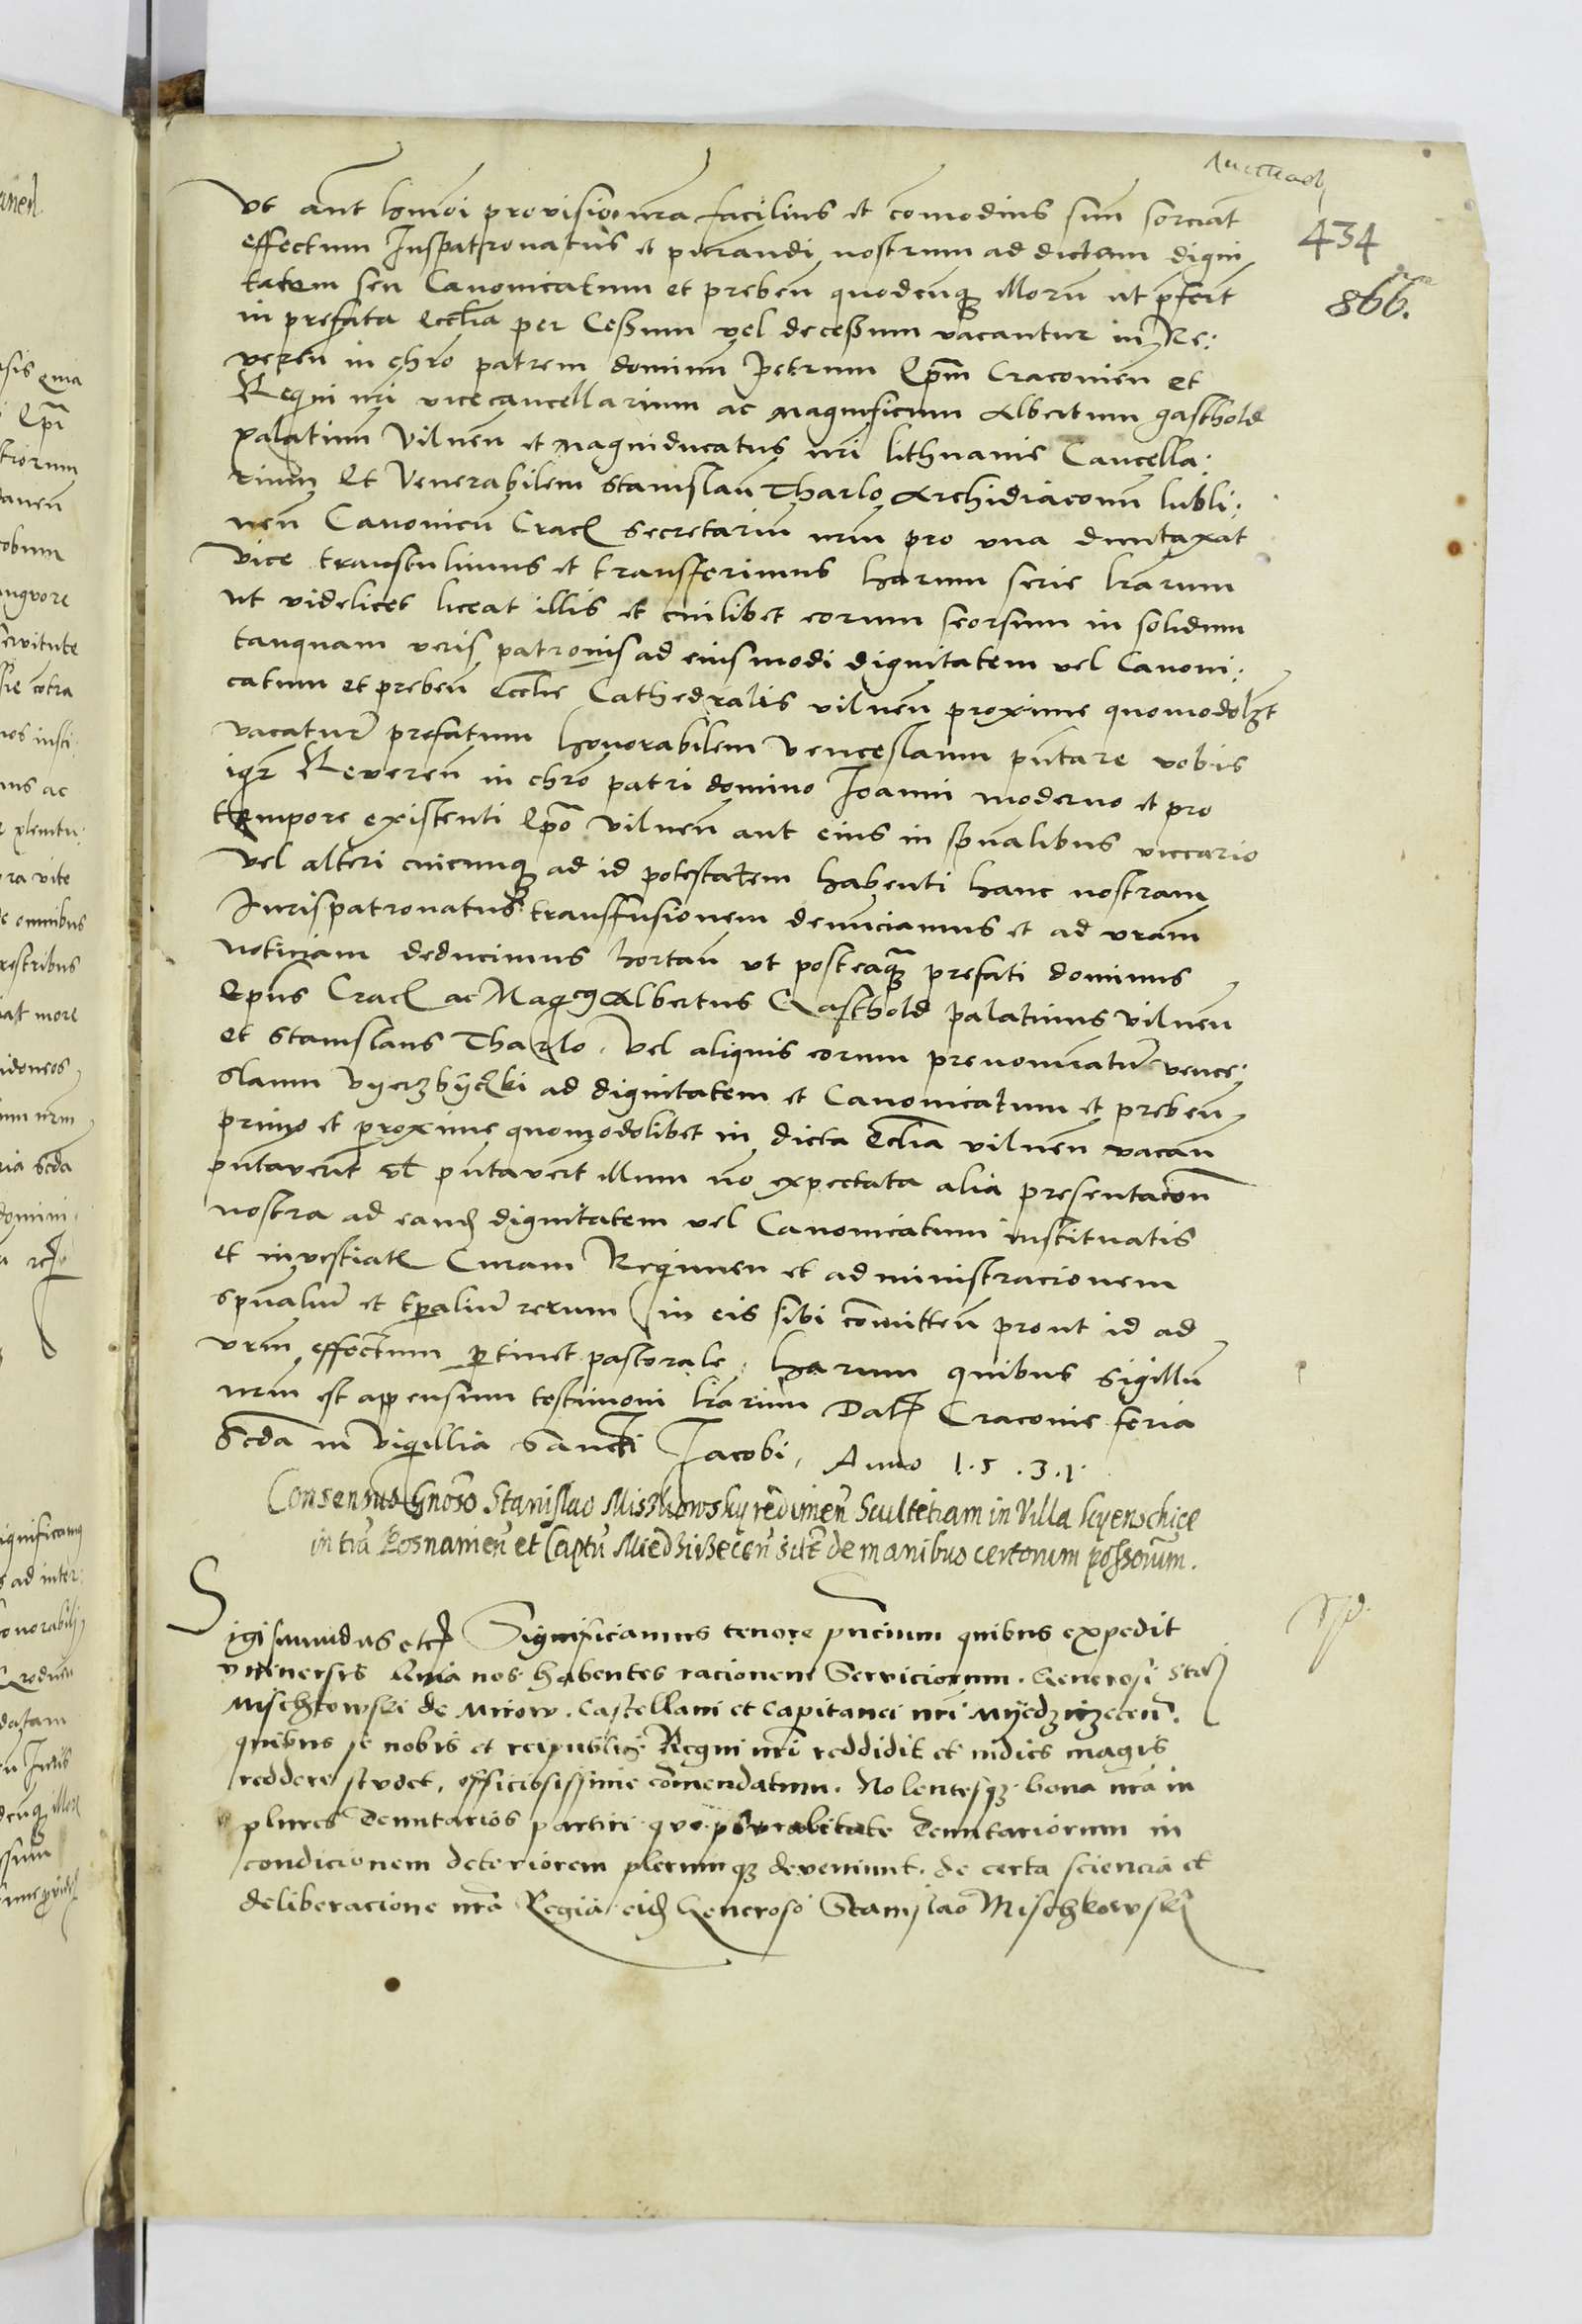 434
866.
Ut aut hmoi provisio nra facilius et comodius suu sorciat
effectum Juspatronatus et pntandi nostrum ad dictam digni
tatem seu Canonicatum et preben quodcunq illorum ut pfert
in prefata Ecclia per Cessum vel decessum vacantur in Re:
veren in chro patrem dominu Petrum Epm Cracovien et
Regni nri vicecancellarium ac magnificum Albertum gasthold
palatinu Vilnen et magniducatus nri lithuanie Cancella:
rium Et Venerabilem Stanislau Tharlo Archidiaconu lubli:
nen Canonicu Crac Secretariu nrm pro una duntaxat
vice transtulimus et transferimus harum serie lrarum
ut videlicet liceat illis et cuilibet eorum seorsum in solidum
tanquam veris patronis ad eiusmodi dignitatem vel Canoni:
catum et preben Ecclie Cathedralis vilnen proxime quomodolibet
vacatur prefatum honorabilem venceslaum pntare vobis
igr Reveren in chro patri domino Joanni moderno et pro
tempore existenti Epo Vilnen aut eius in spualibus viccario
vel alteri cuicunq ad id potestatem habenti hanc nostram
Jurispatronatus transfusionem denunciamus et ad vram
noticiam deducimus hortan ut posteaq prefati dominus
Epus Crac ac Magcus Albertus Gasthold palatinus vilnen
et Stanislaus Tharlo. Vel aliquis eorum prenominatur vence:
slaum Vyerzbyczki ad dignitatem et Canonicatum et preben
primo et proxime quomodolibet in dicta Ecclia vilnen vacan
pntaverit vl pntavert illum no expectata alia presentacon
nostra ad eand dignitatem vel Canonicatum instituatis
et investiatis Curam Regimen et administracionem
spualiu et tpaliu rerum in eis sibi comitten prout id ad
vrm effectum ptinet pastorale. harum quibus Sigillu
nrm est appensum testimoni lrarum Dat Cracovie feria
Scda in vigillia Sancti Jacobi, Anno 1.5.3.1.
Consensus Gnoso Stanislao Misskowsky redimen Scultetiam in Villa kyenschice
in tra Posnanien et Captu Miedzirzecen site de manibus certorum possorum.
Sigismundus etc Significamus tenore pncium quibus expedit
universis Quia nos habentes racionem Serviciorum. Generosi Stas
Mischkowski de Mirow. Castellani et Capitanei nri Myedzirzecen.
quibus se nobis et reipublice Regni nri reddidit et indies magis
reddere studet, officiosissime comendatum. Nolentesq bona nra in
plures Tenutarios partiri que pluralitate Tenutariorum in
condicionem deteriorem plerunq deveniunt. de certa sciencia et
deliberacione nra Regia eid Generoso Stanislao Mischkowski